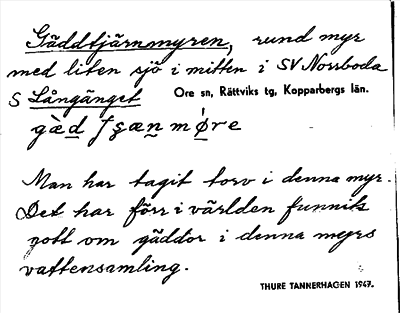 Gäddtjärnmyren, rund myr
med liten sjö i mitten i SV Norrboda
S Långänget Ore sn, Rättviks tg, Kopparbergs län.
Man har tagit torv i denna myr.
Det har förr i världen funnits
gott om gäddor i denna myrs
vattensamling.
THURE TANNERHAGEN 1947.